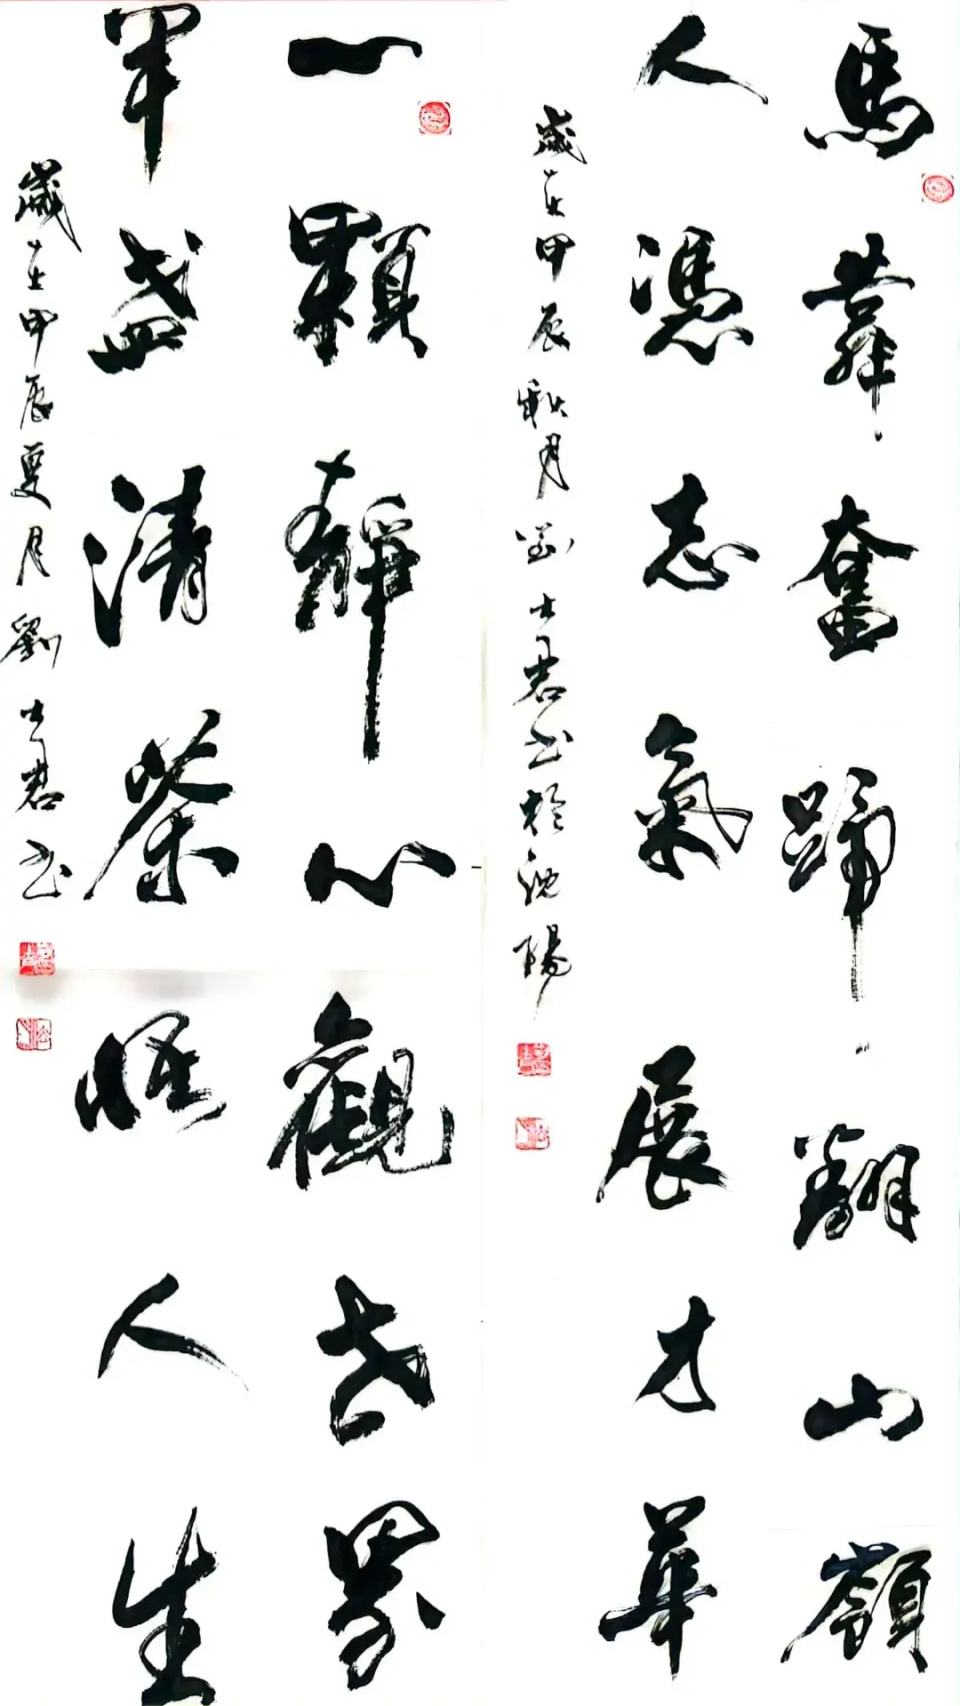 馬靠奮蹄翻山嶺
人憑志氣展才華
歲在甲辰秋月劉士君书於沈陽
一顆静心觀世界
半盏清茶悟人生
歲在甲辰夏月劉士君书